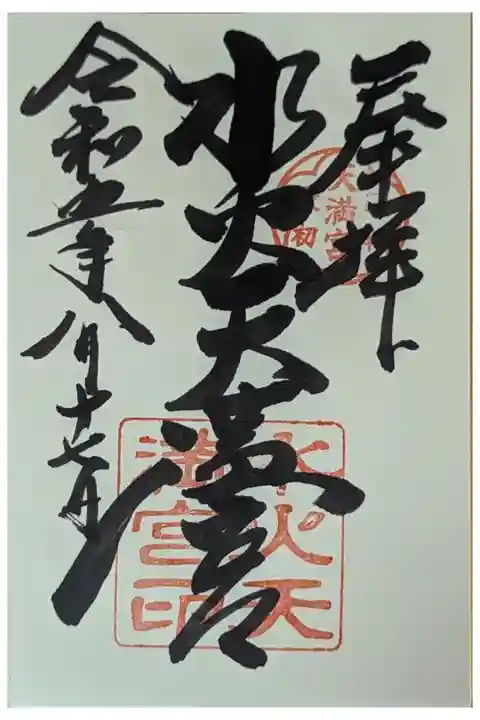 奉拝
水火天満宮
令和五年八月十七日
天満宮
水火天
満宮印